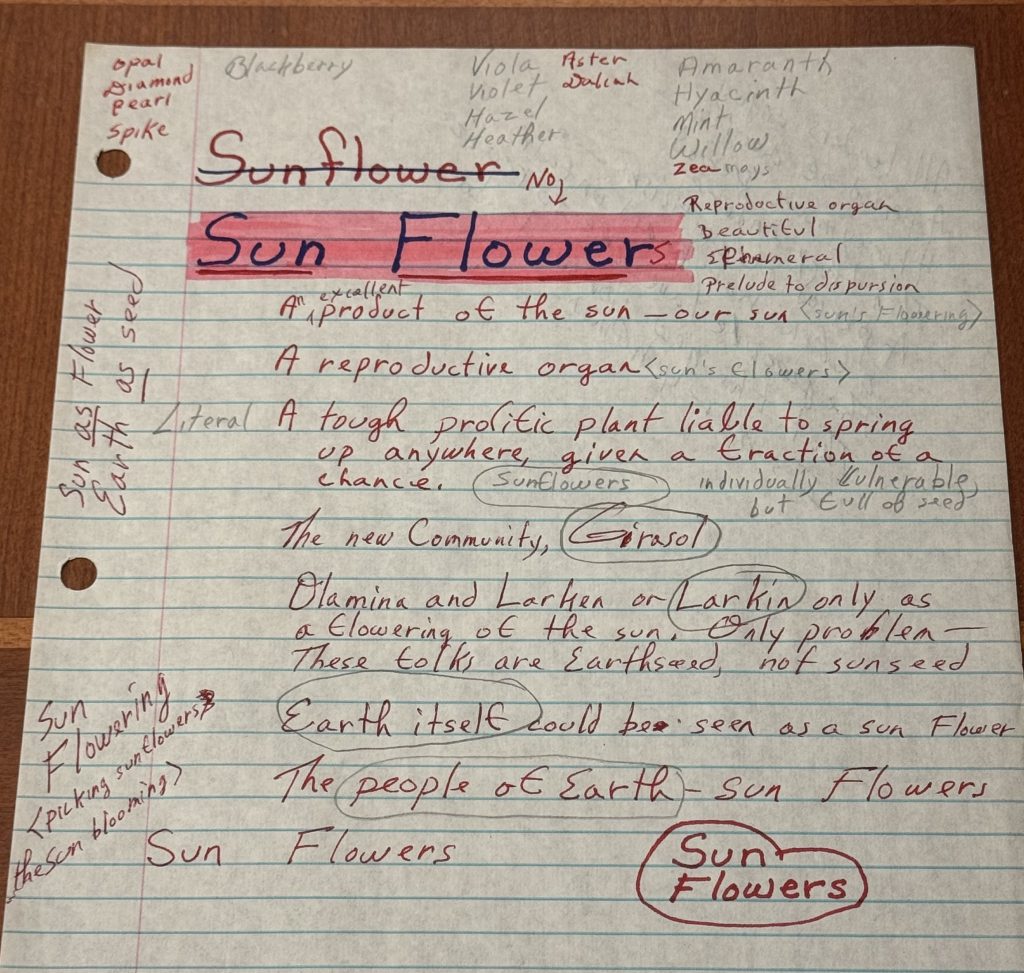 opal
Diamond
pearl
spike
Blackberry
Viola
Violet
Hazel
Heather
Aster
Daliah
Amaranth
Hyacinth
Mint
Willow
zea mays
Sunflower
No
Sun Flowers
Reproductive organ
beautiful
Prelude to dispursion
An excallent product of the sun — our sun <sun's Flowering>
A reproductive organ <sun's flowers>
Literal A tough prolific plant liable to spring
up anywhere, given a fraction of a
chance. Sunflowers individually Vulnerable,
but full of seed
The new Community, Girasol
Olamina and Larken or Larkin only as
a flowering of the sun. Only problem —
These folks are Earthseed, not sunseed
Earth itself could be seen as a sun Flower
The people of Earth - sun Flowers
Sun Flowers
Sun
Flowers
Sun as Flower
Earth as seed
Sun
Flowering
<picking sunflowers>
the sun blooming>